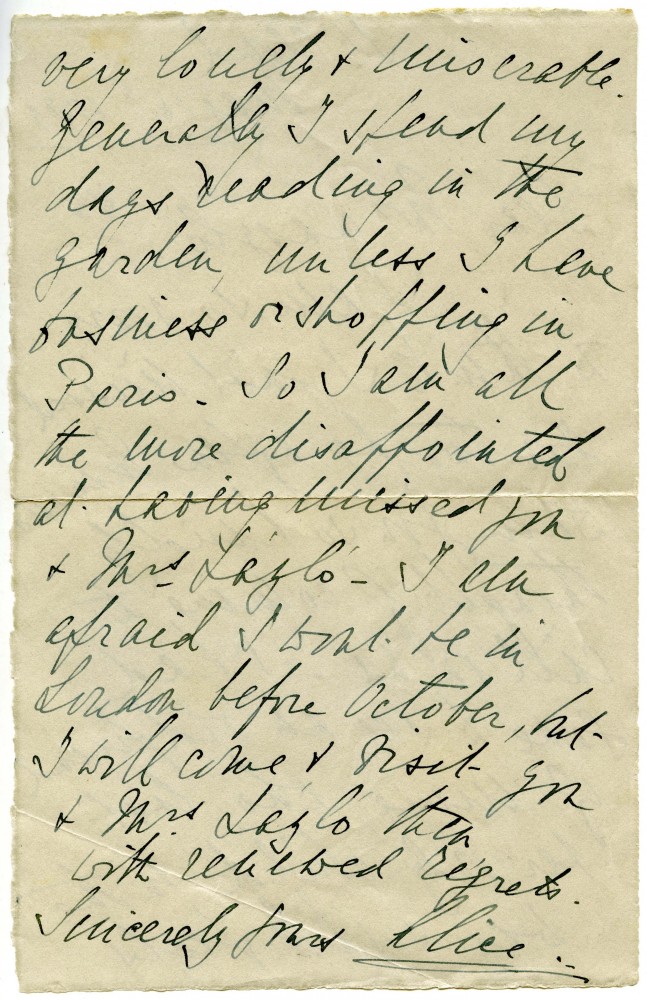 very lonely & miserable.
Generally I spend my
days reading in the
garden, unless I have
business or shopping in
Paris - So I am all
the more disappointed
at having missed you
& Mrs László - I am
afraid I wont be in
London before October, but
I will come & visit you
& Mrs László then
with renewed regrets.
Sincerely yours Alice.